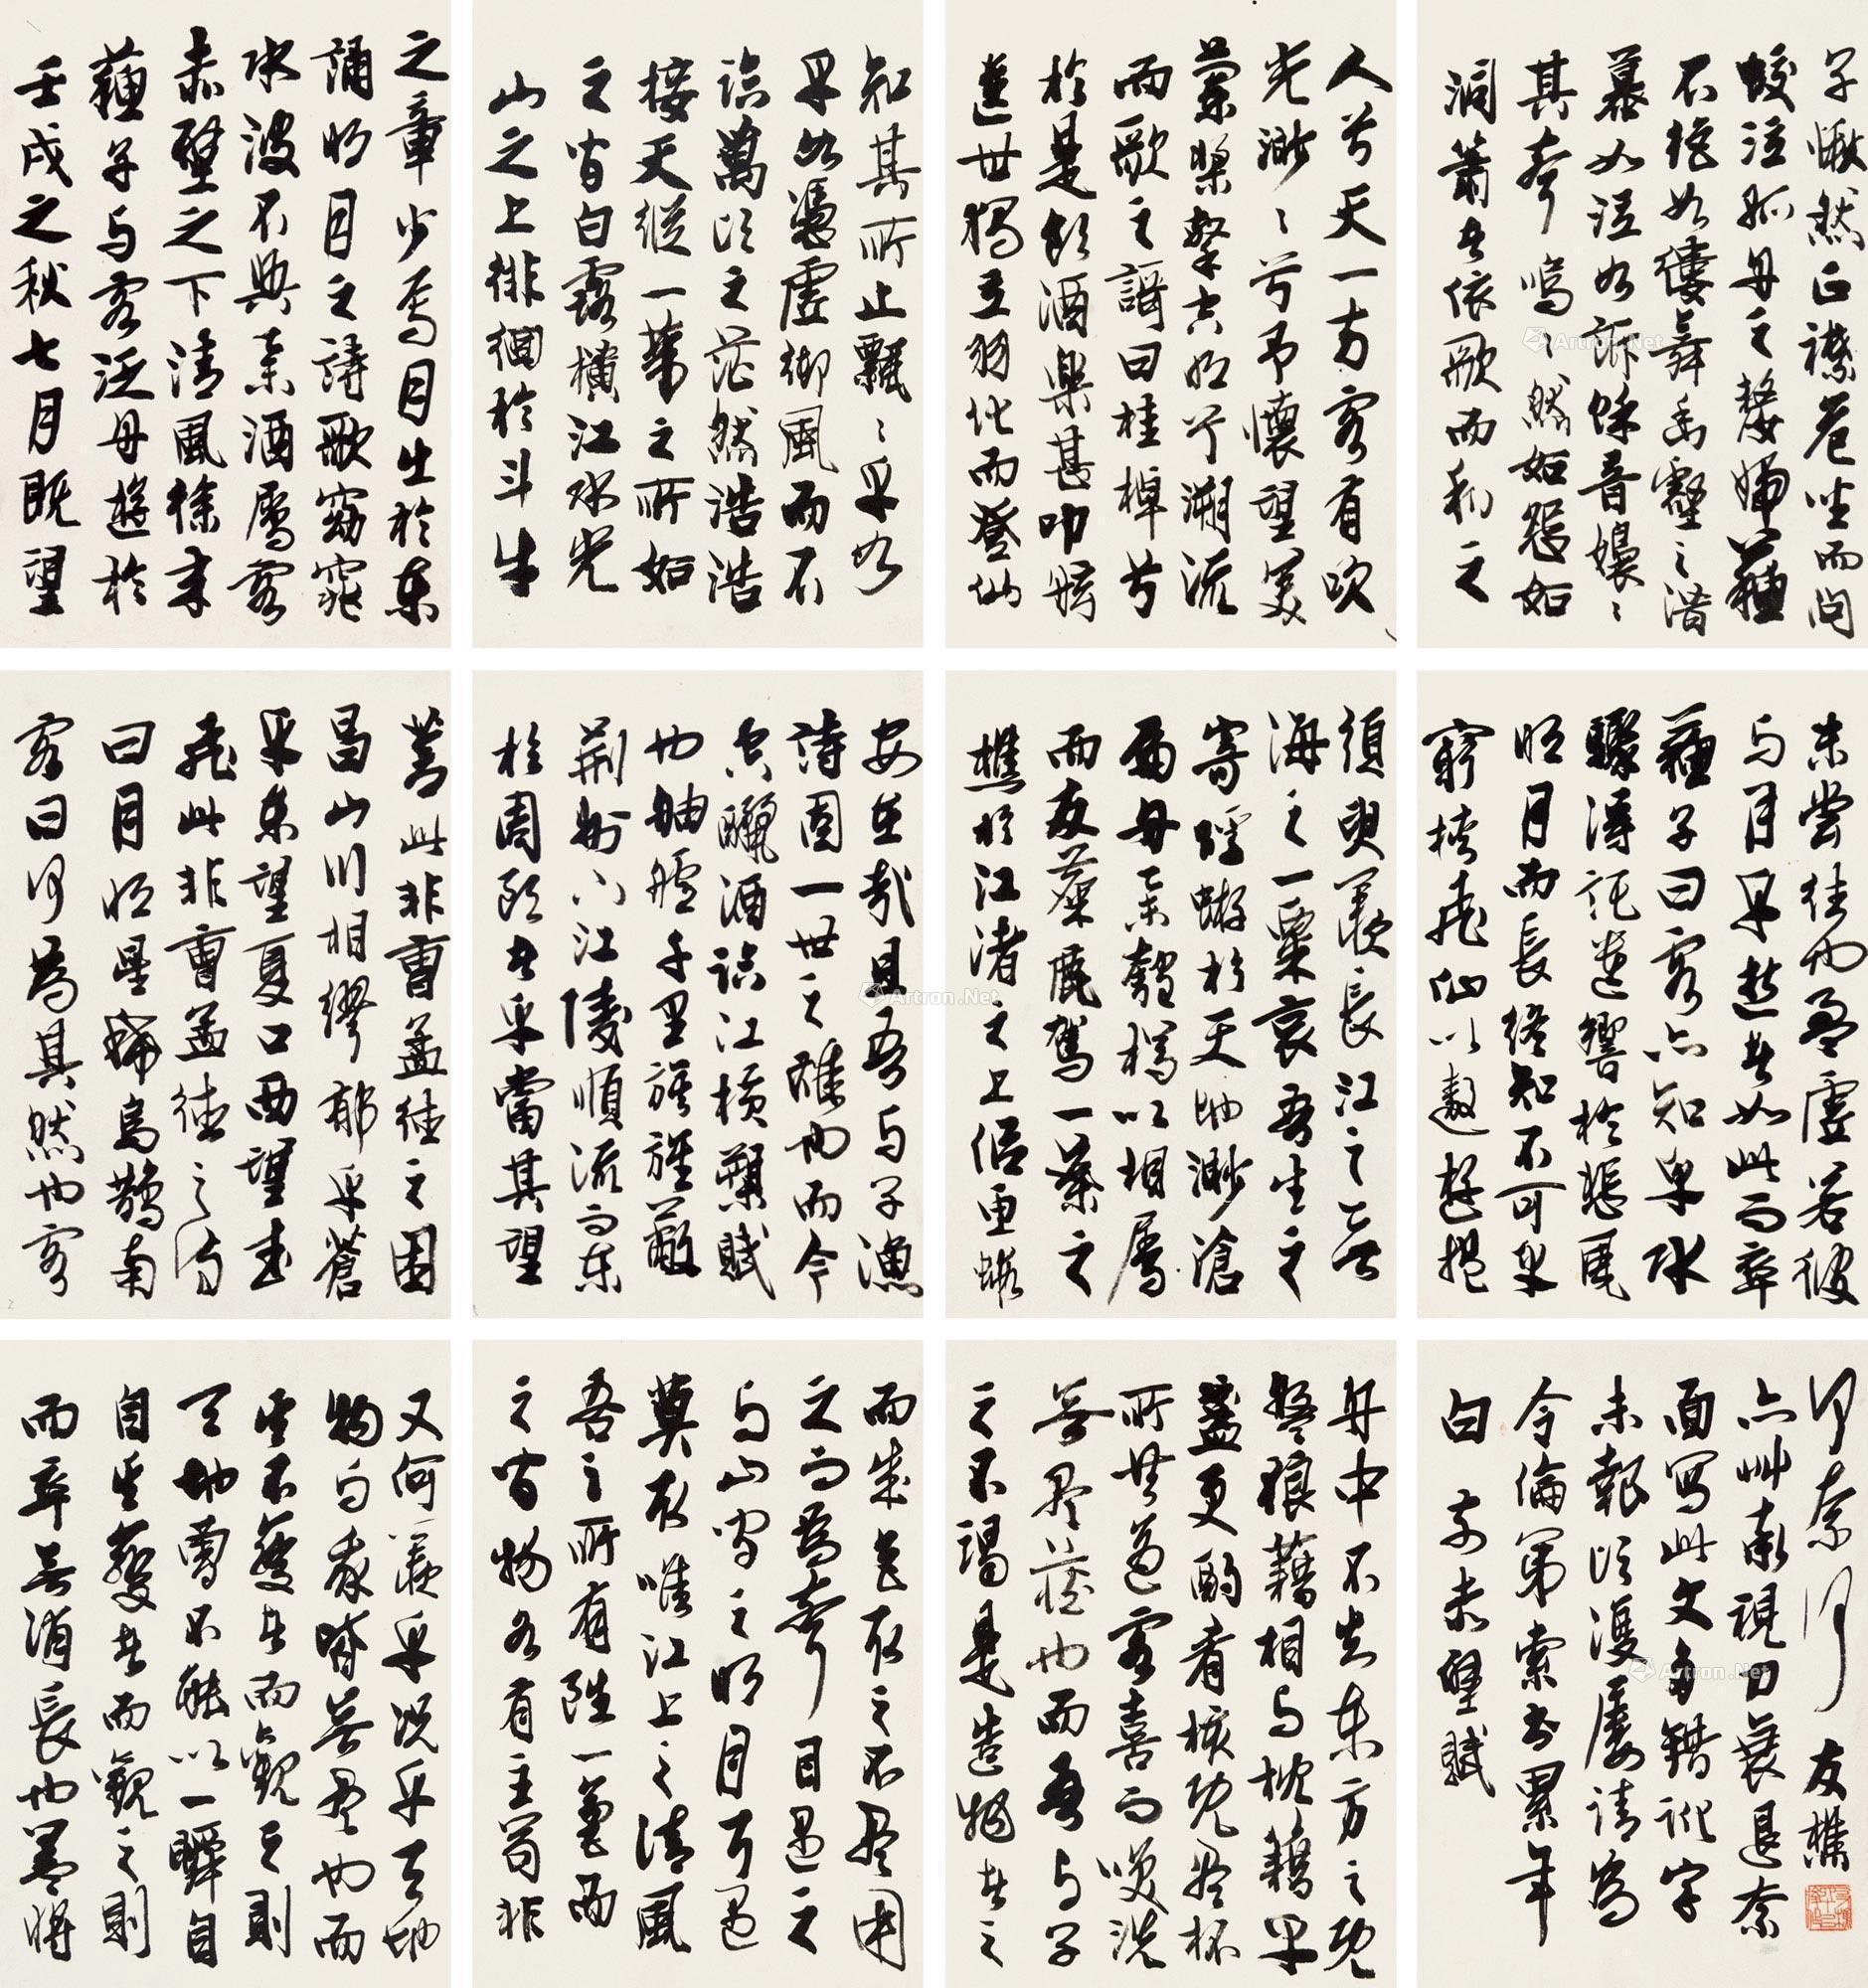 壬戌之秋七月既望
蘇子与客泛舟遊於
赤壁之下清風徐来
水波不興素酒属客
誦明月之詩歌窈窕
之章少焉月出於東
山之上徘徊於斗牛
之間白露橫江水光
接天縱一葦之所如
凌萬頃之茫然浩浩
乎如憑虛御風而不
知其所止飄〻乎如
遺世獨立羽化而登仙
於是飲酒樂甚叩舷
而歌之謌曰桂棹兮
蘭槳擊空明兮溯流
光渺〻兮予懷望美
人兮天一方客有吹
洞簫者依歌而和之
其聲嗚〻然如怨如
慕如泣如訴餘音嫋〻
不絕如縷舞幽壑之潛
蛟泣孤舟之嫠婦蘇
子愀然正襟危坐而問
客曰何為其然也客
曰月明星稀烏鵲南
飛此非曹孟德之詩
乎東望夏口西望武
昌山川相繆郁乎蒼
蒼此非曹孟德之困
於周郎者乎當其望
荆州下江陵順流而東
也舳艫千里旌旗蔽
空釃酒臨江橫槊賦
詩固一世之雄也而今
安在哉且吾与子漁
樵於江渚之上侶魚蝦
而友麋鹿駕一葉之
扁舟舉匏樽以相属
寄蜉蝣於天地渺滄
海之一粟哀吾生之
須臾羨長江之無
窮挾飛仙以遨遊抱
明月而長終知不可乎
驟得託遺響於悲風
蘇子曰客亦知乎水
与月乎逝者如此而卒
未嘗往也盈虛若彼
而卒無消長也蓋將
自其變者而觀之則
天地曾不能以一瞬自
其不變者而觀之則
物与我皆無盡也而
又何羨乎況乎天地
之間物各有主苟非
吾之所有雖一毫而
莫取唯江上之清風
与山間之明月耳遇
之而為聲目遇之
而成色取之不盡用
之不竭是造物者之
無盡藏也而吾与子
所共適客喜而笑洗
盞更酌肴核既盡杯
盤狼藉相与枕藉乎
舟中不知東方之既
白 前赤壁賦
令倫第索書累年
未報頃復屢請為
面寫此文多錯訛字
亦艸率視力衰退奈
何奈何 友樵
Artron.Net
Artron.Net
Artron.Net